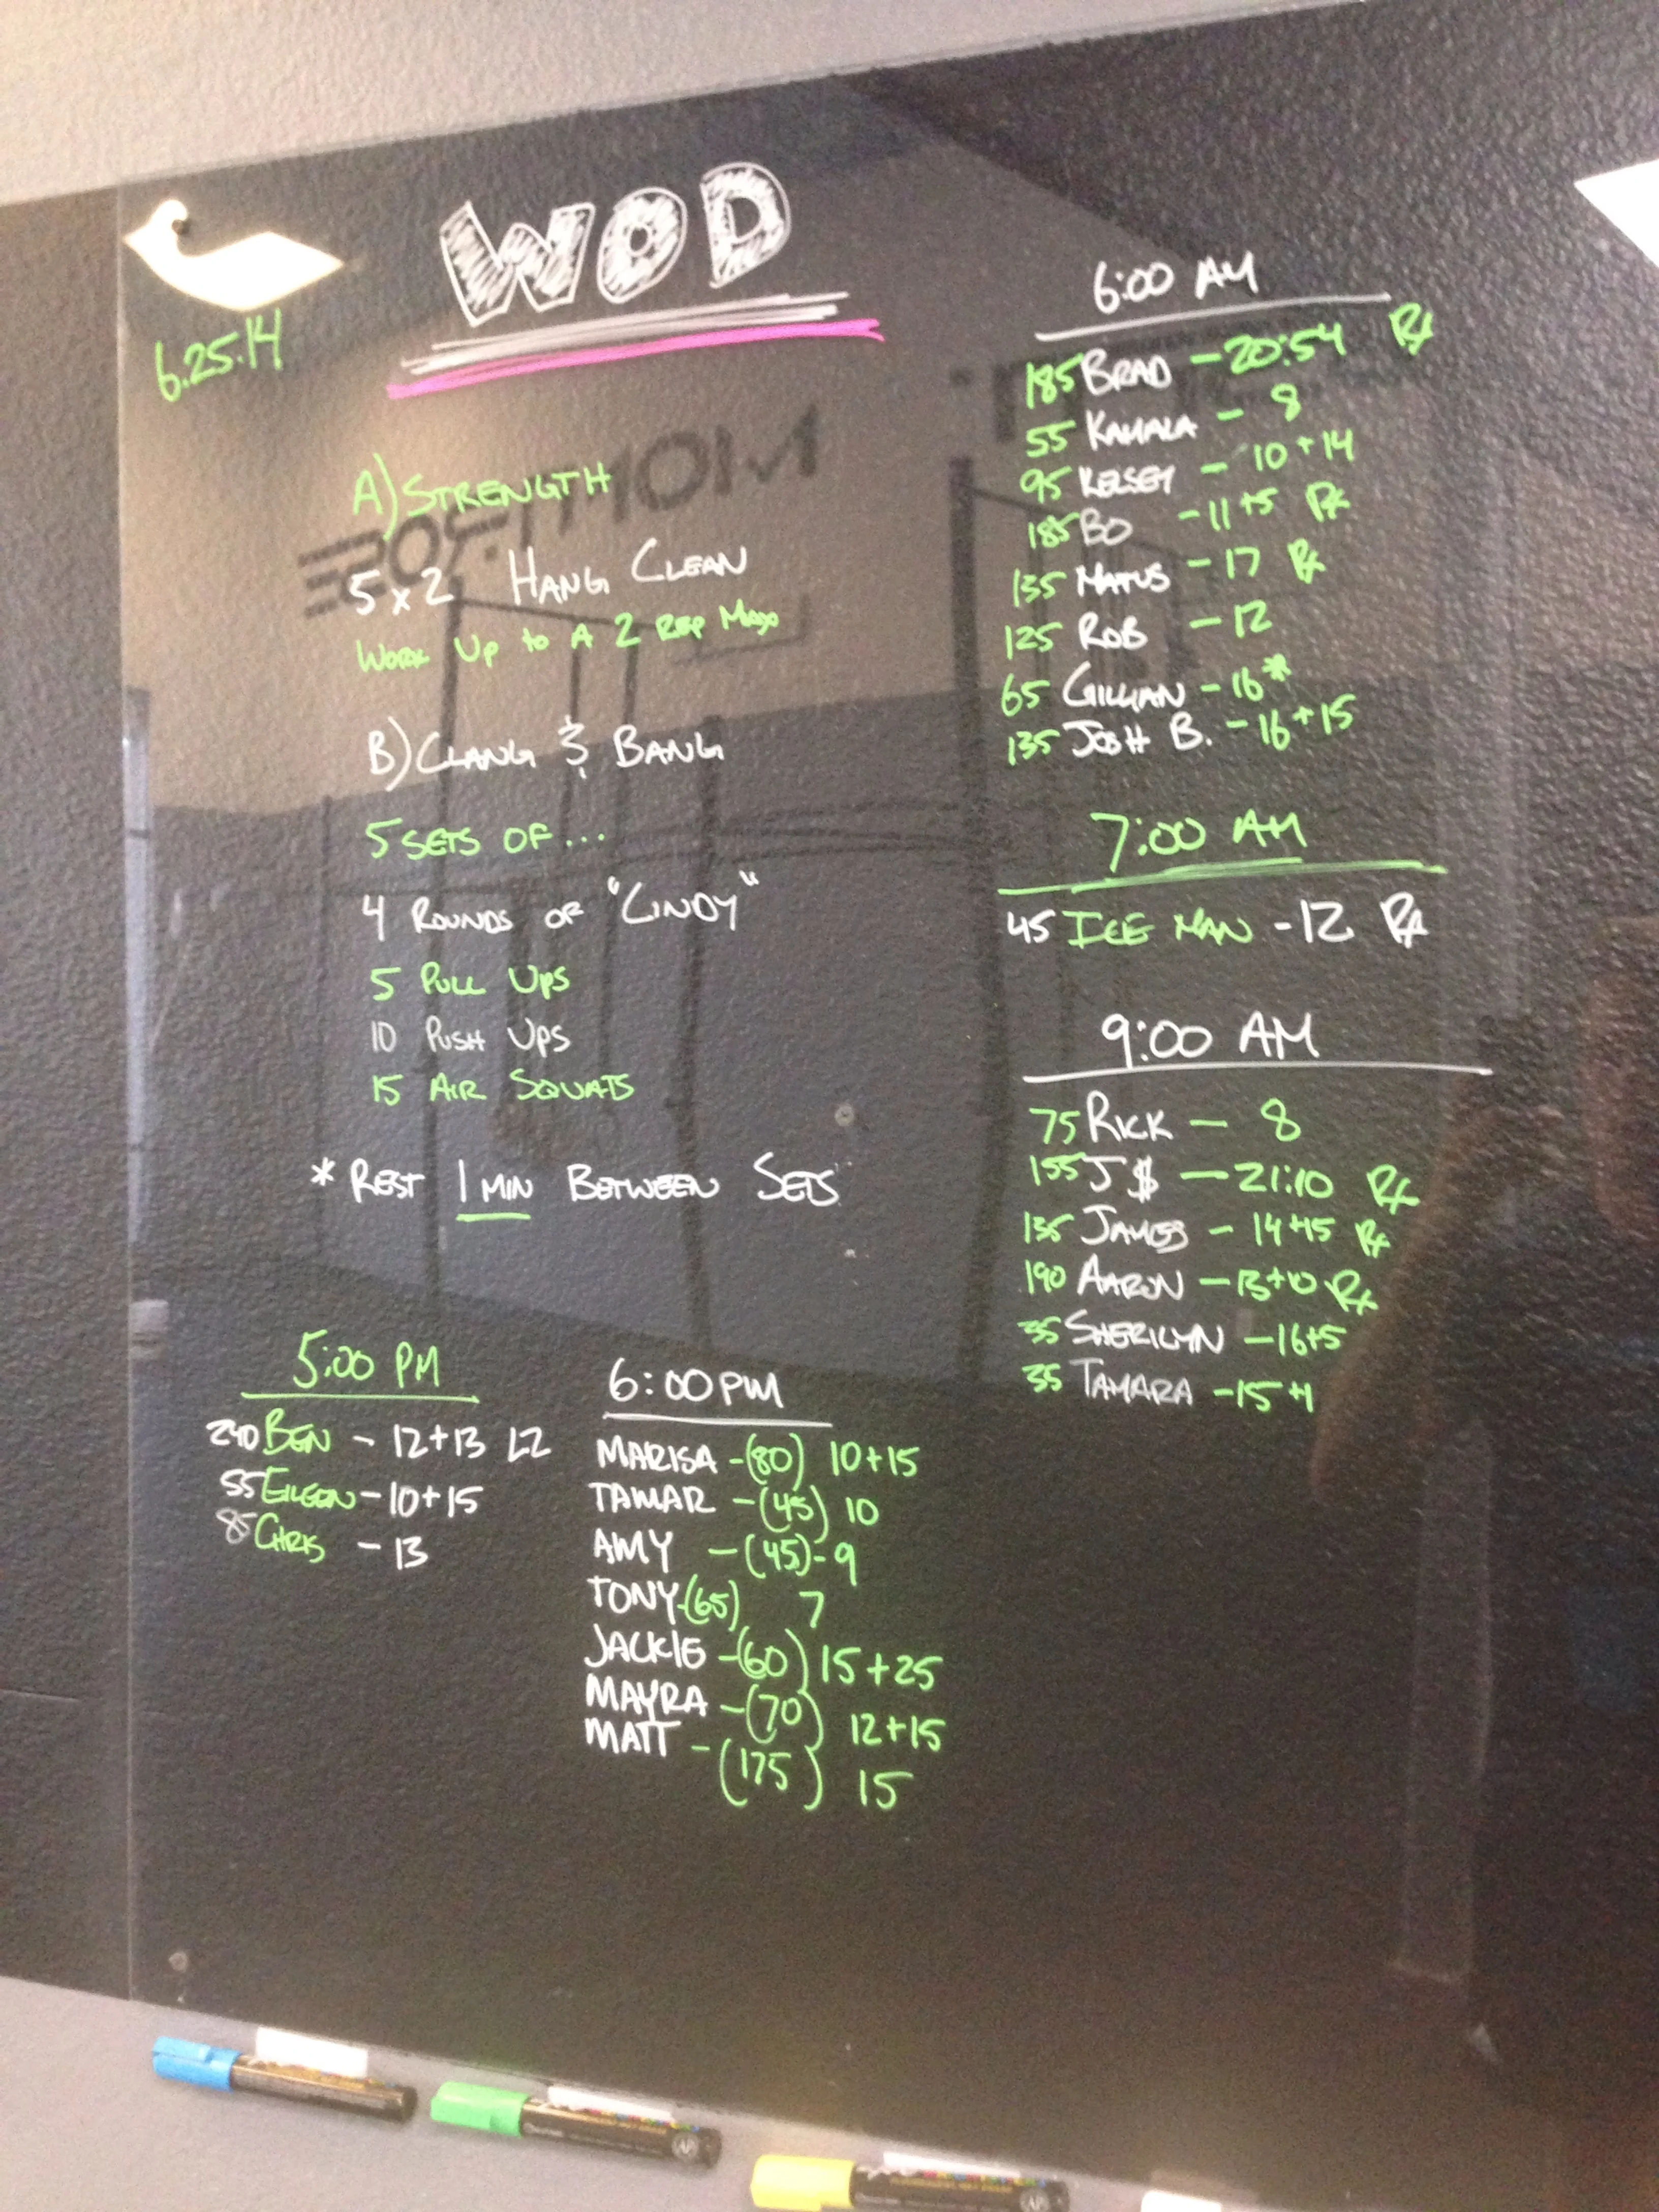 WOD
6.25.14
A) STRENGTH
5x2 HANG CLEAN
WORK UP TO A 2 REP MAX
B) CLANG & BANG
5 SETS OF...
4 ROUNDS OF "CINDY"
5 PULL UPS
10 PUSH UPS
15 AIR SQUATS
* REST 1 MIN BETWEEN SETS
6:00 AM
185 BRAD - 20:54 Rx
55 KAMALA - 8
95 KELSEY - 10+14
185 BO - 11+5 Rx
135 - 17 Rx
125 ROB - 12
65 GILLIAN - 16*
135 JOSH B. - 16+15
7:00 AM
45 ICE MAN - 12 Rx
9:00 AM
75 RICK - 8
155 J$ - 21:10 Rx
135 JAMES - 14+15 Rx
190 AARON - 13+10 Rx
35 SHERILYN - 16+5
35 TAMARA - 15+1
5:00 PM
240 BEN - 12+13 L2
55 EILEEN - 10+15
85 CHRIS - 13
6:00 PM
MARISA - (80) 10+15
TAMAR - (45) 10
AMY - (45) - 9
TONY - (65) 7
JACKIE - (60) 15+25
MAYRA - (70) 12+15
MATT - (175) 15